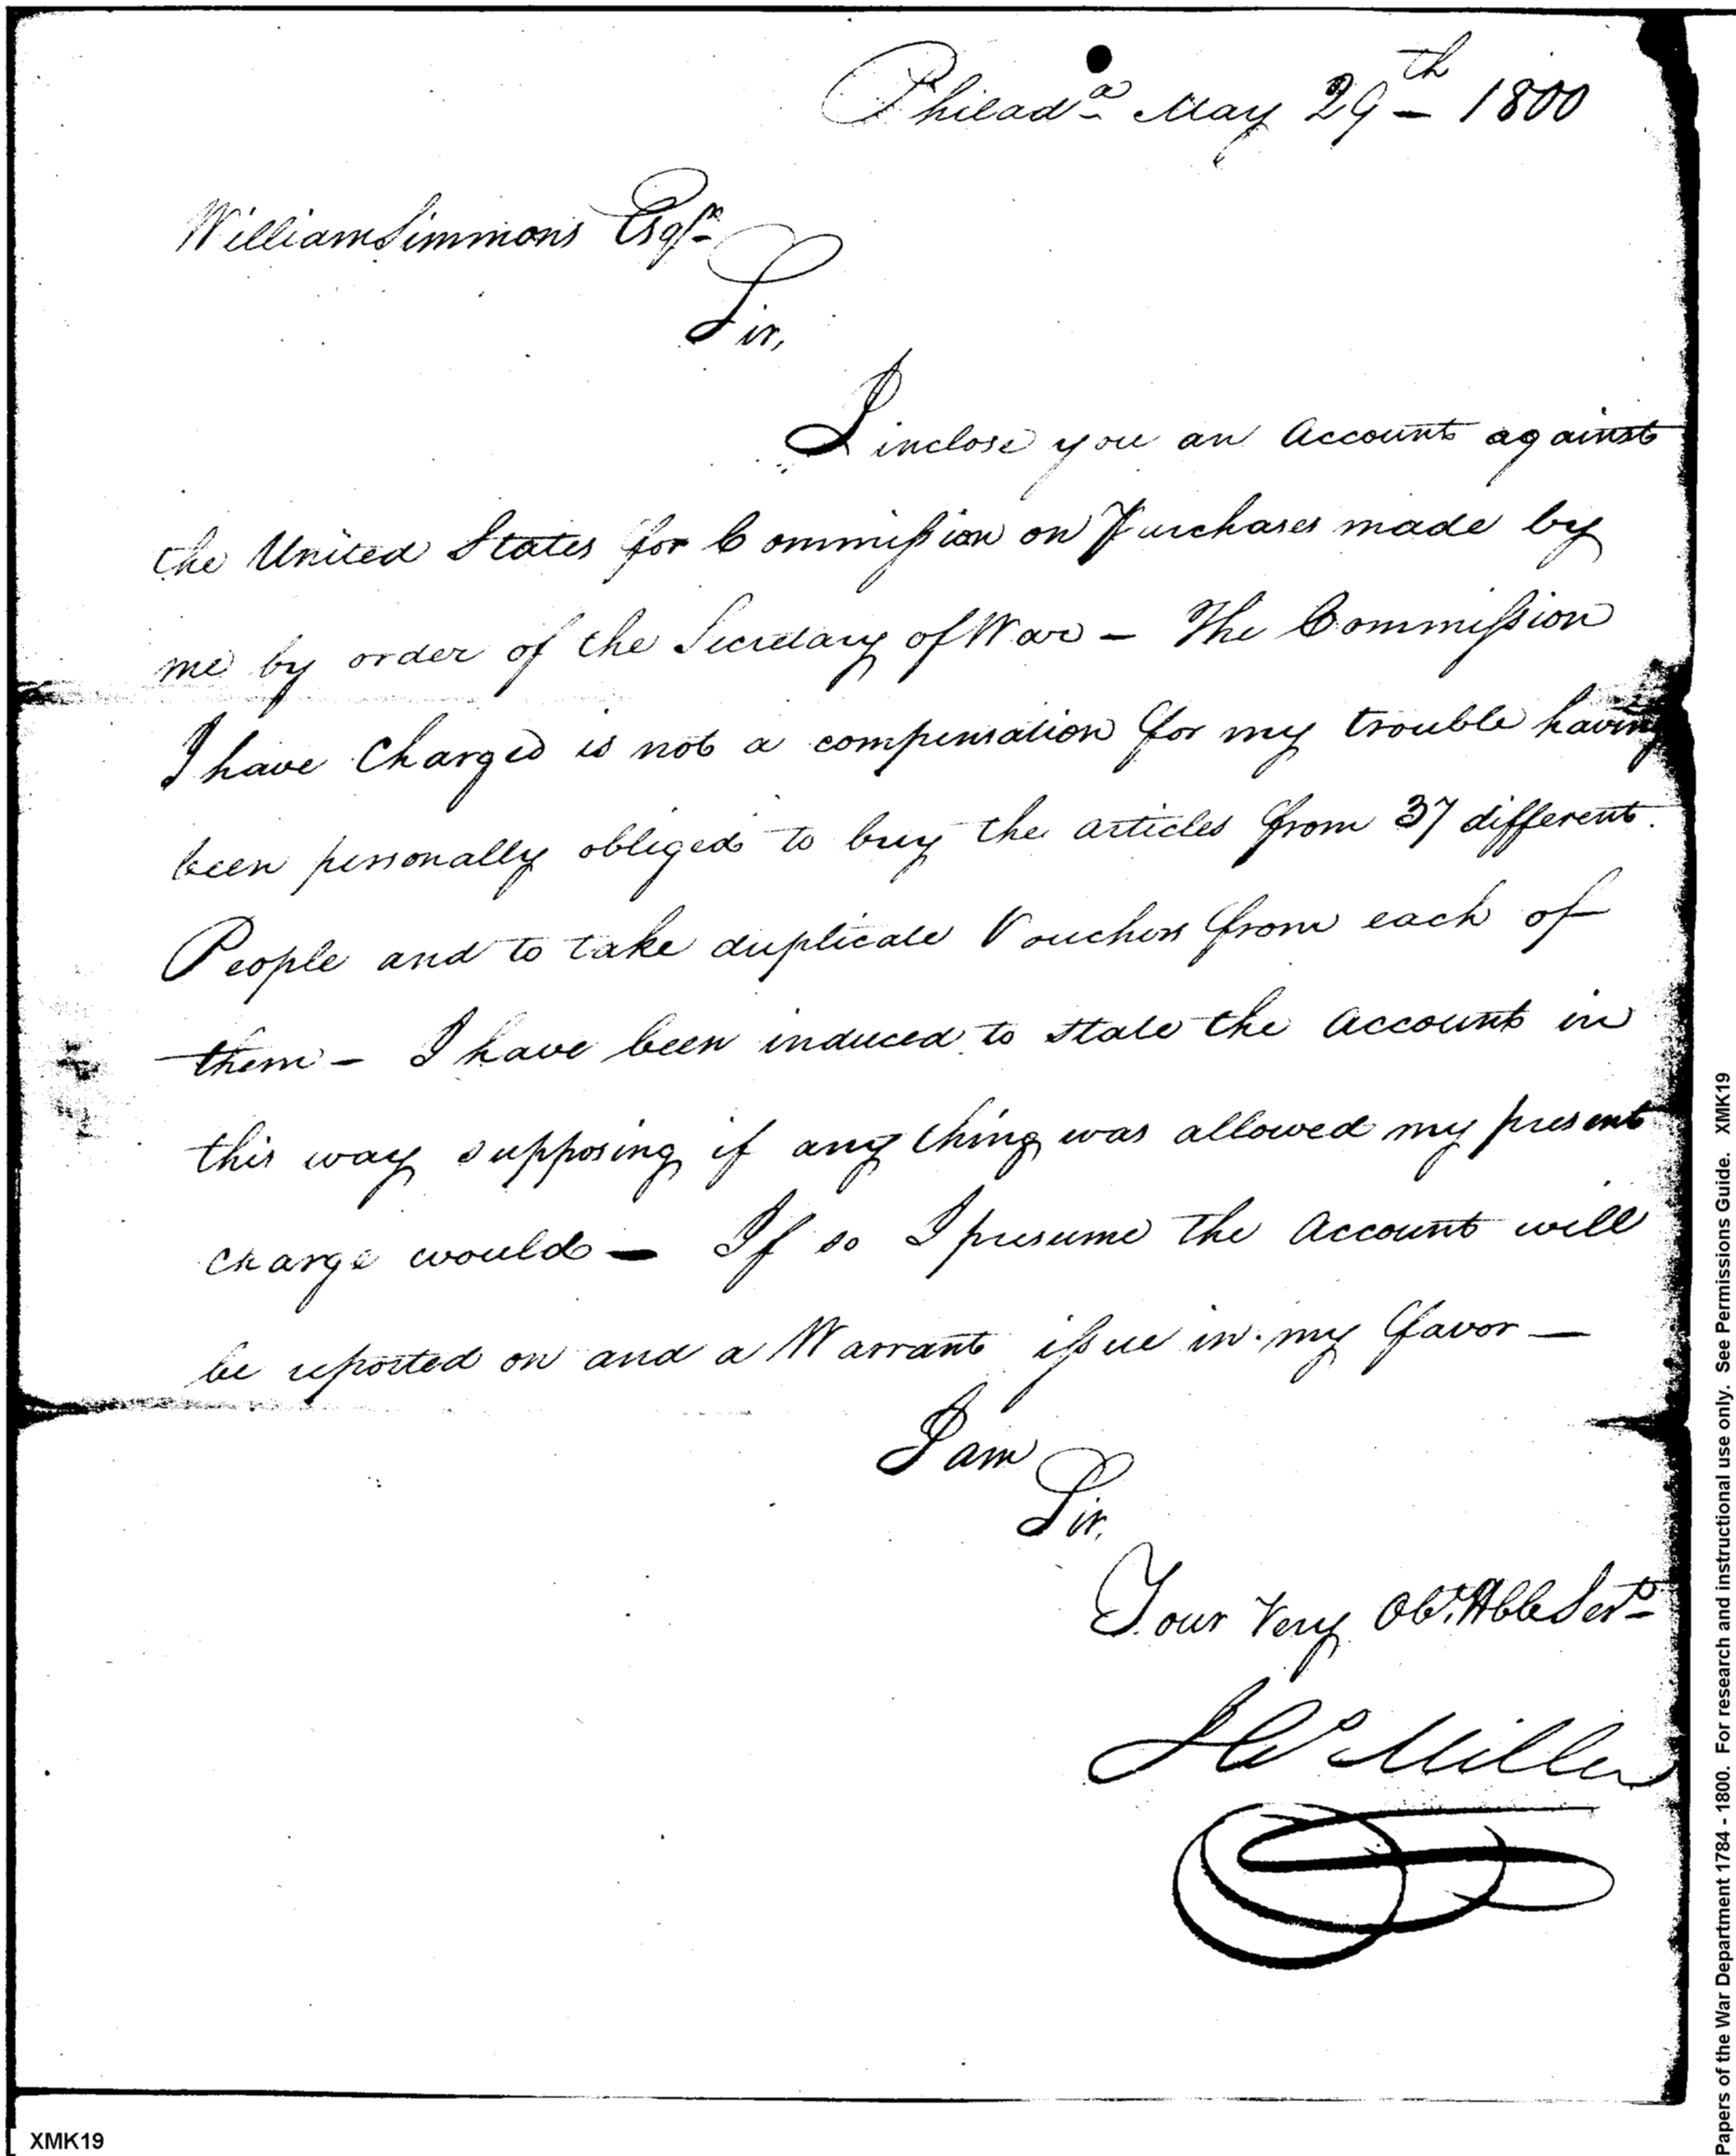 Philad.a May 29th 1800
William Simmons Esqr.
Sir,
I inclose you an Account against
the United States for Commission on Purchases made by
me by order of the Secretary of War - The Commission
I have Charged is not a compensation for my trouble having
been personally obliged to buy the articles from 37 different
People and to take duplicate Vouchers from each of
them - I have been induced to state the Account in
this way supposing if any thing was allowed my present
charge would - If so I presume the Account will
be reported on and a Warrant issue in my favor -
I am
Sir,
Your Very Obt. Hble Servt.
Miller
XMK19
Papers of the War Department 1784 - 1800. For research and instructional use only. See Permissions Guide. XMK19